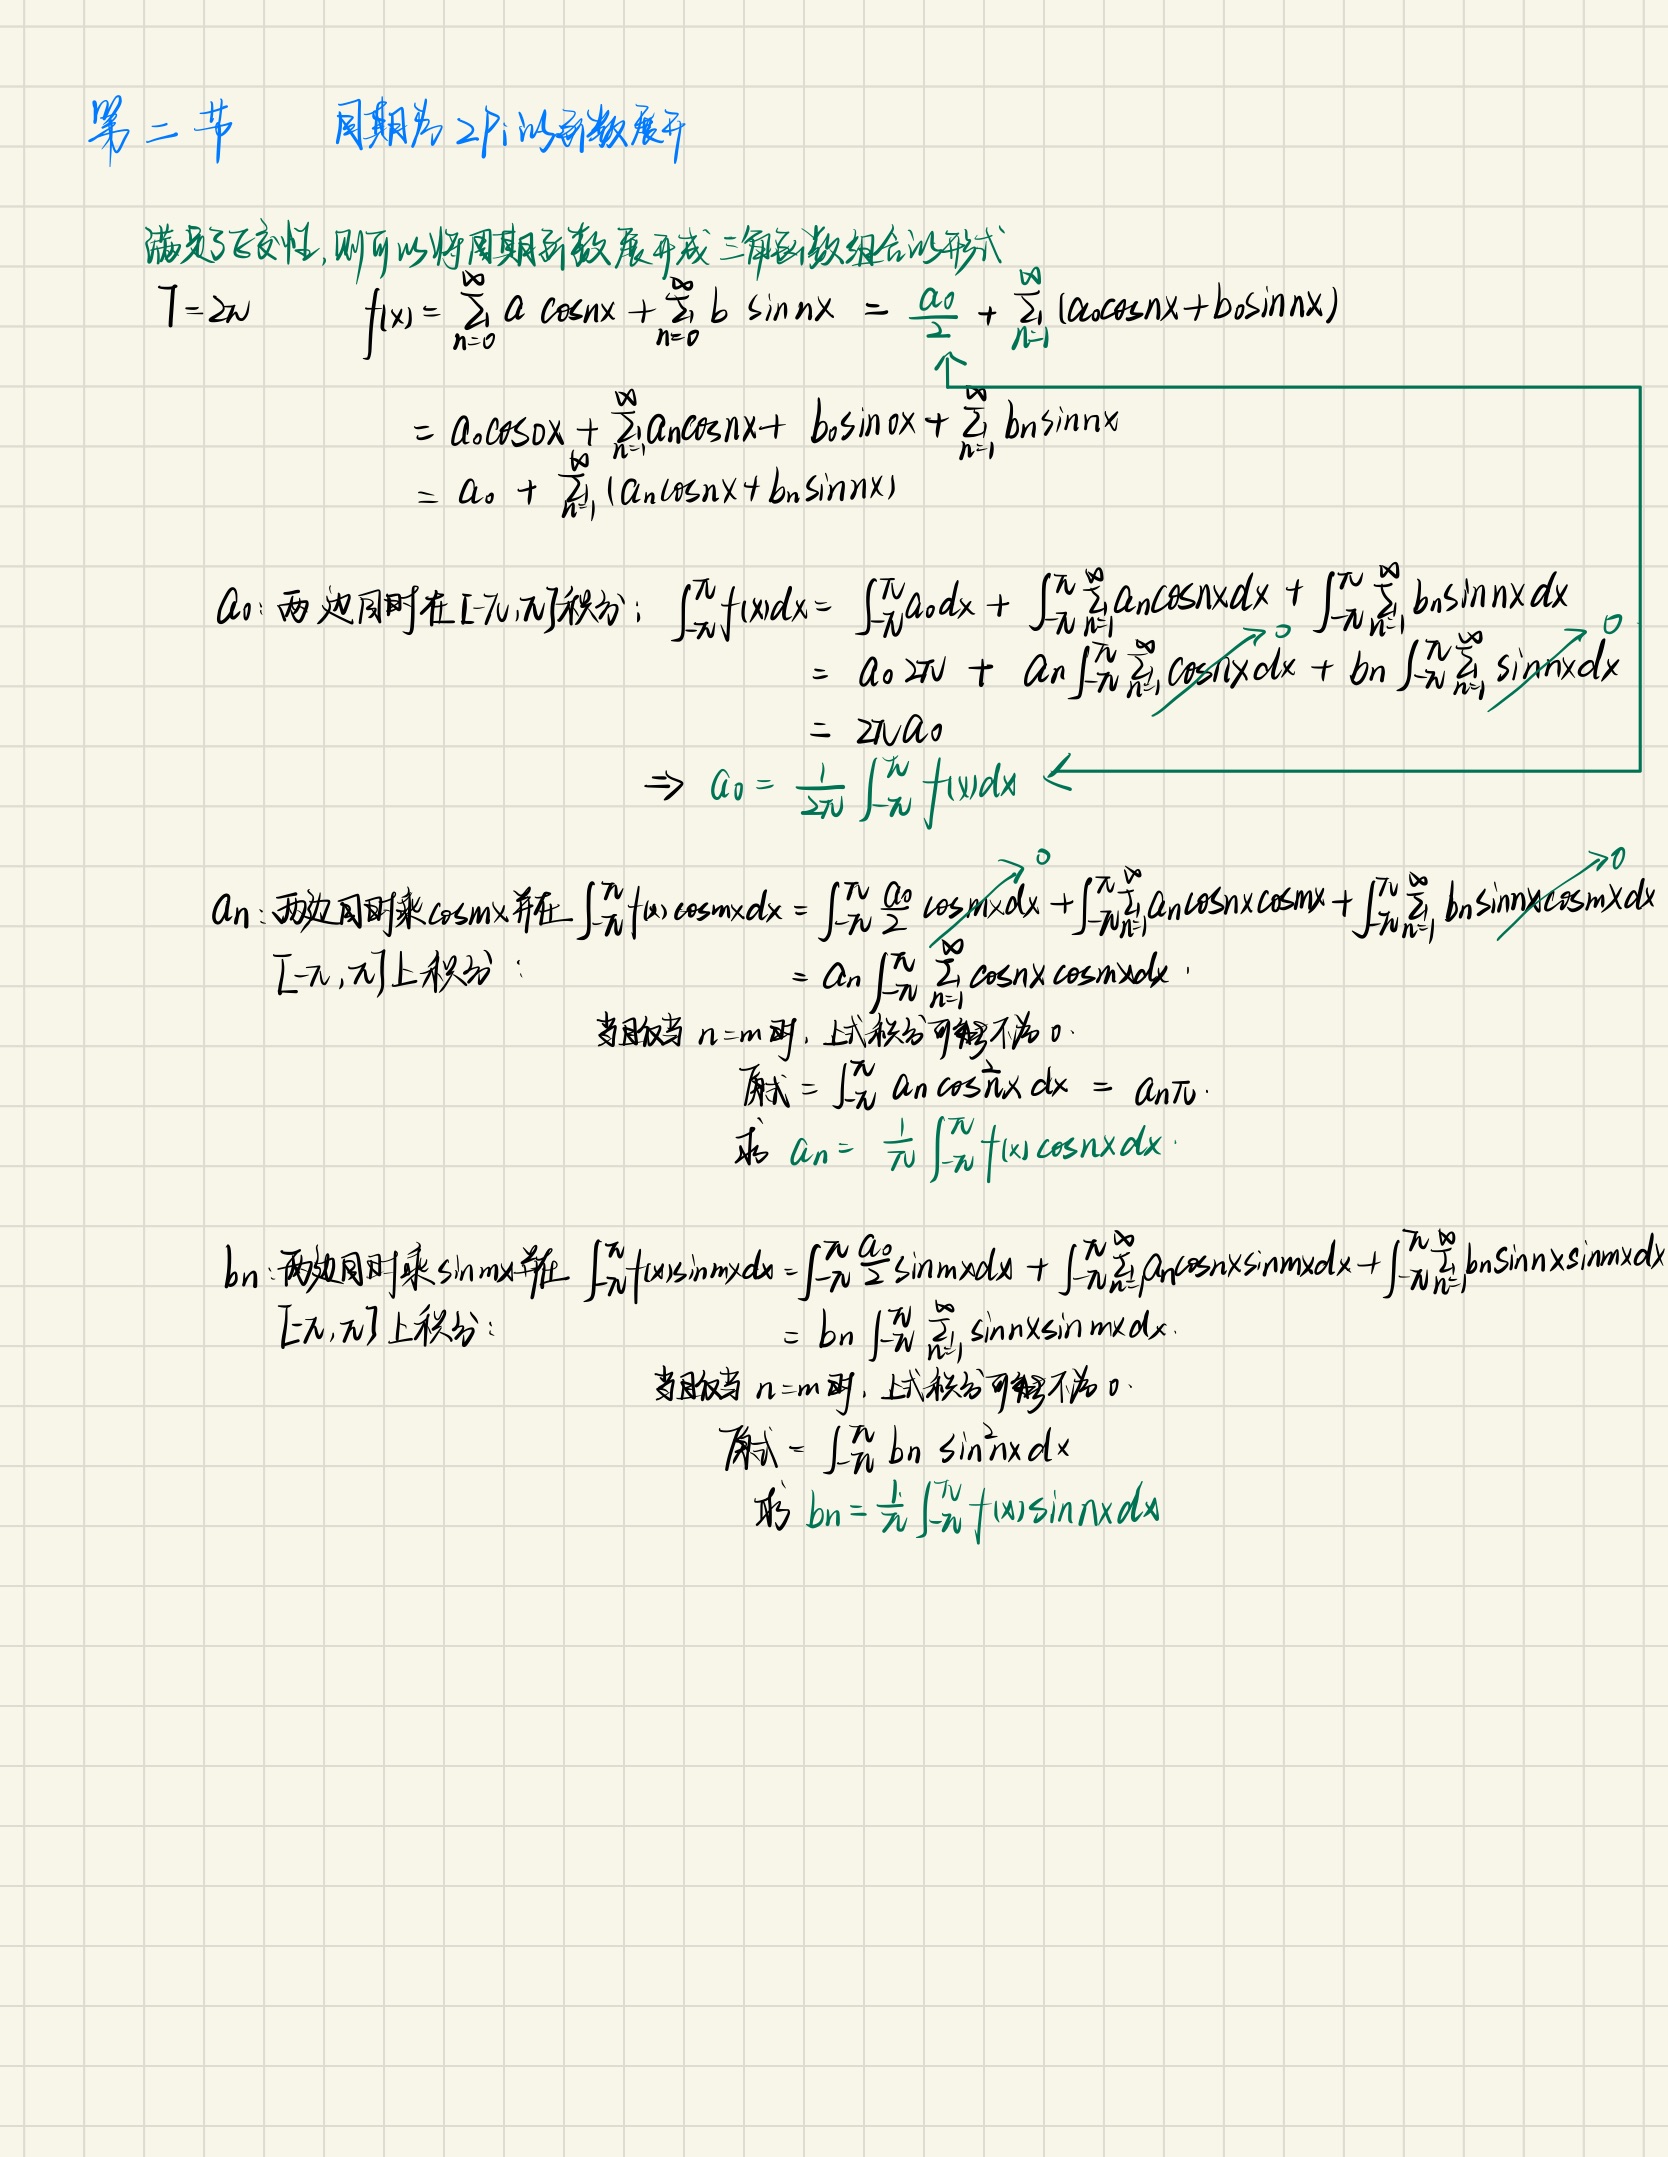 第二节 周期为2Pi的函数展开
满足了正交性,则可以将周期函数展开成三角函数组合的形式
T=2π f(x) = ∑_{n=0}^{∞} a cosnx + ∑_{n=0}^{∞} b sinnx = a₀/2 + ∑_{n=1}^{∞} (a₀cosnx+b₀sinnx)
= a₀cos0x + ∑_{n=1}^{∞} aₙcosnx + b₀sin0x + ∑_{n=1}^{∞} bₙsinnx
= a₀ + ∑_{n=1}^{∞} (aₙcosnx+bₙsinnx)
a₀: 两边同时在[-π,π]积分: ∫_{-π}^{π} f(x)dx = ∫_{-π}^{π} a₀dx + ∫_{-π}^{π} ∑_{n=1}^{∞} aₙcosnxdx + ∫_{-π}^{π} ∑_{n=1}^{∞} bₙsinnxdx
= a₀2π + aₙ∫_{-π}^{π} ∑_{n=1}^{∞} cosnxdx → 0 + bₙ∫_{-π}^{π} ∑_{n=1}^{∞} sinnxdx → 0
= 2πa₀
⇒ a₀ = 1/2π ∫_{-π}^{π} f(x)dx
aₙ: 两边同时乘cosmx并在 ∫_{-π}^{π} f(x)cosmxdx = ∫_{-π}^{π} a₀/2 cosmxdx → 0 + ∫_{-π}^{π} ∑_{n=1}^{∞} aₙcosnxcosmx + ∫_{-π}^{π} ∑_{n=1}^{∞} bₙsinnxcosmxdx → 0
[-π,π]上积分: = aₙ∫_{-π}^{π} ∑_{n=1}^{∞} cosnxcosmxdx.
当且仅当 n=m时, 上式积分可能不为0.
原式 = ∫_{-π}^{π} aₙcos²nxdx = aₙπ.
求 aₙ = 1/π ∫_{-π}^{π} f(x)cosnxdx.
bₙ: 两边同时乘sinmx并在 ∫_{-π}^{π} f(x)sinmxdx = ∫_{-π}^{π} a₀/2 sinmxdx + ∫_{-π}^{π} ∑_{n=1}^{∞} aₙcosnxsinmxdx + ∫_{-π}^{π} ∑_{n=1}^{∞} bₙsinnxsinmxdx
[-π,π]上积分: = bₙ∫_{-π}^{π} ∑_{n=1}^{∞} sinnxsinmxdx.
当且仅当 n=m时, 上式积分可能不为0.
原式 = ∫_{-π}^{π} bₙ sin²nxdx
求 bₙ = 1/π ∫_{-π}^{π} f(x)sinnxdx